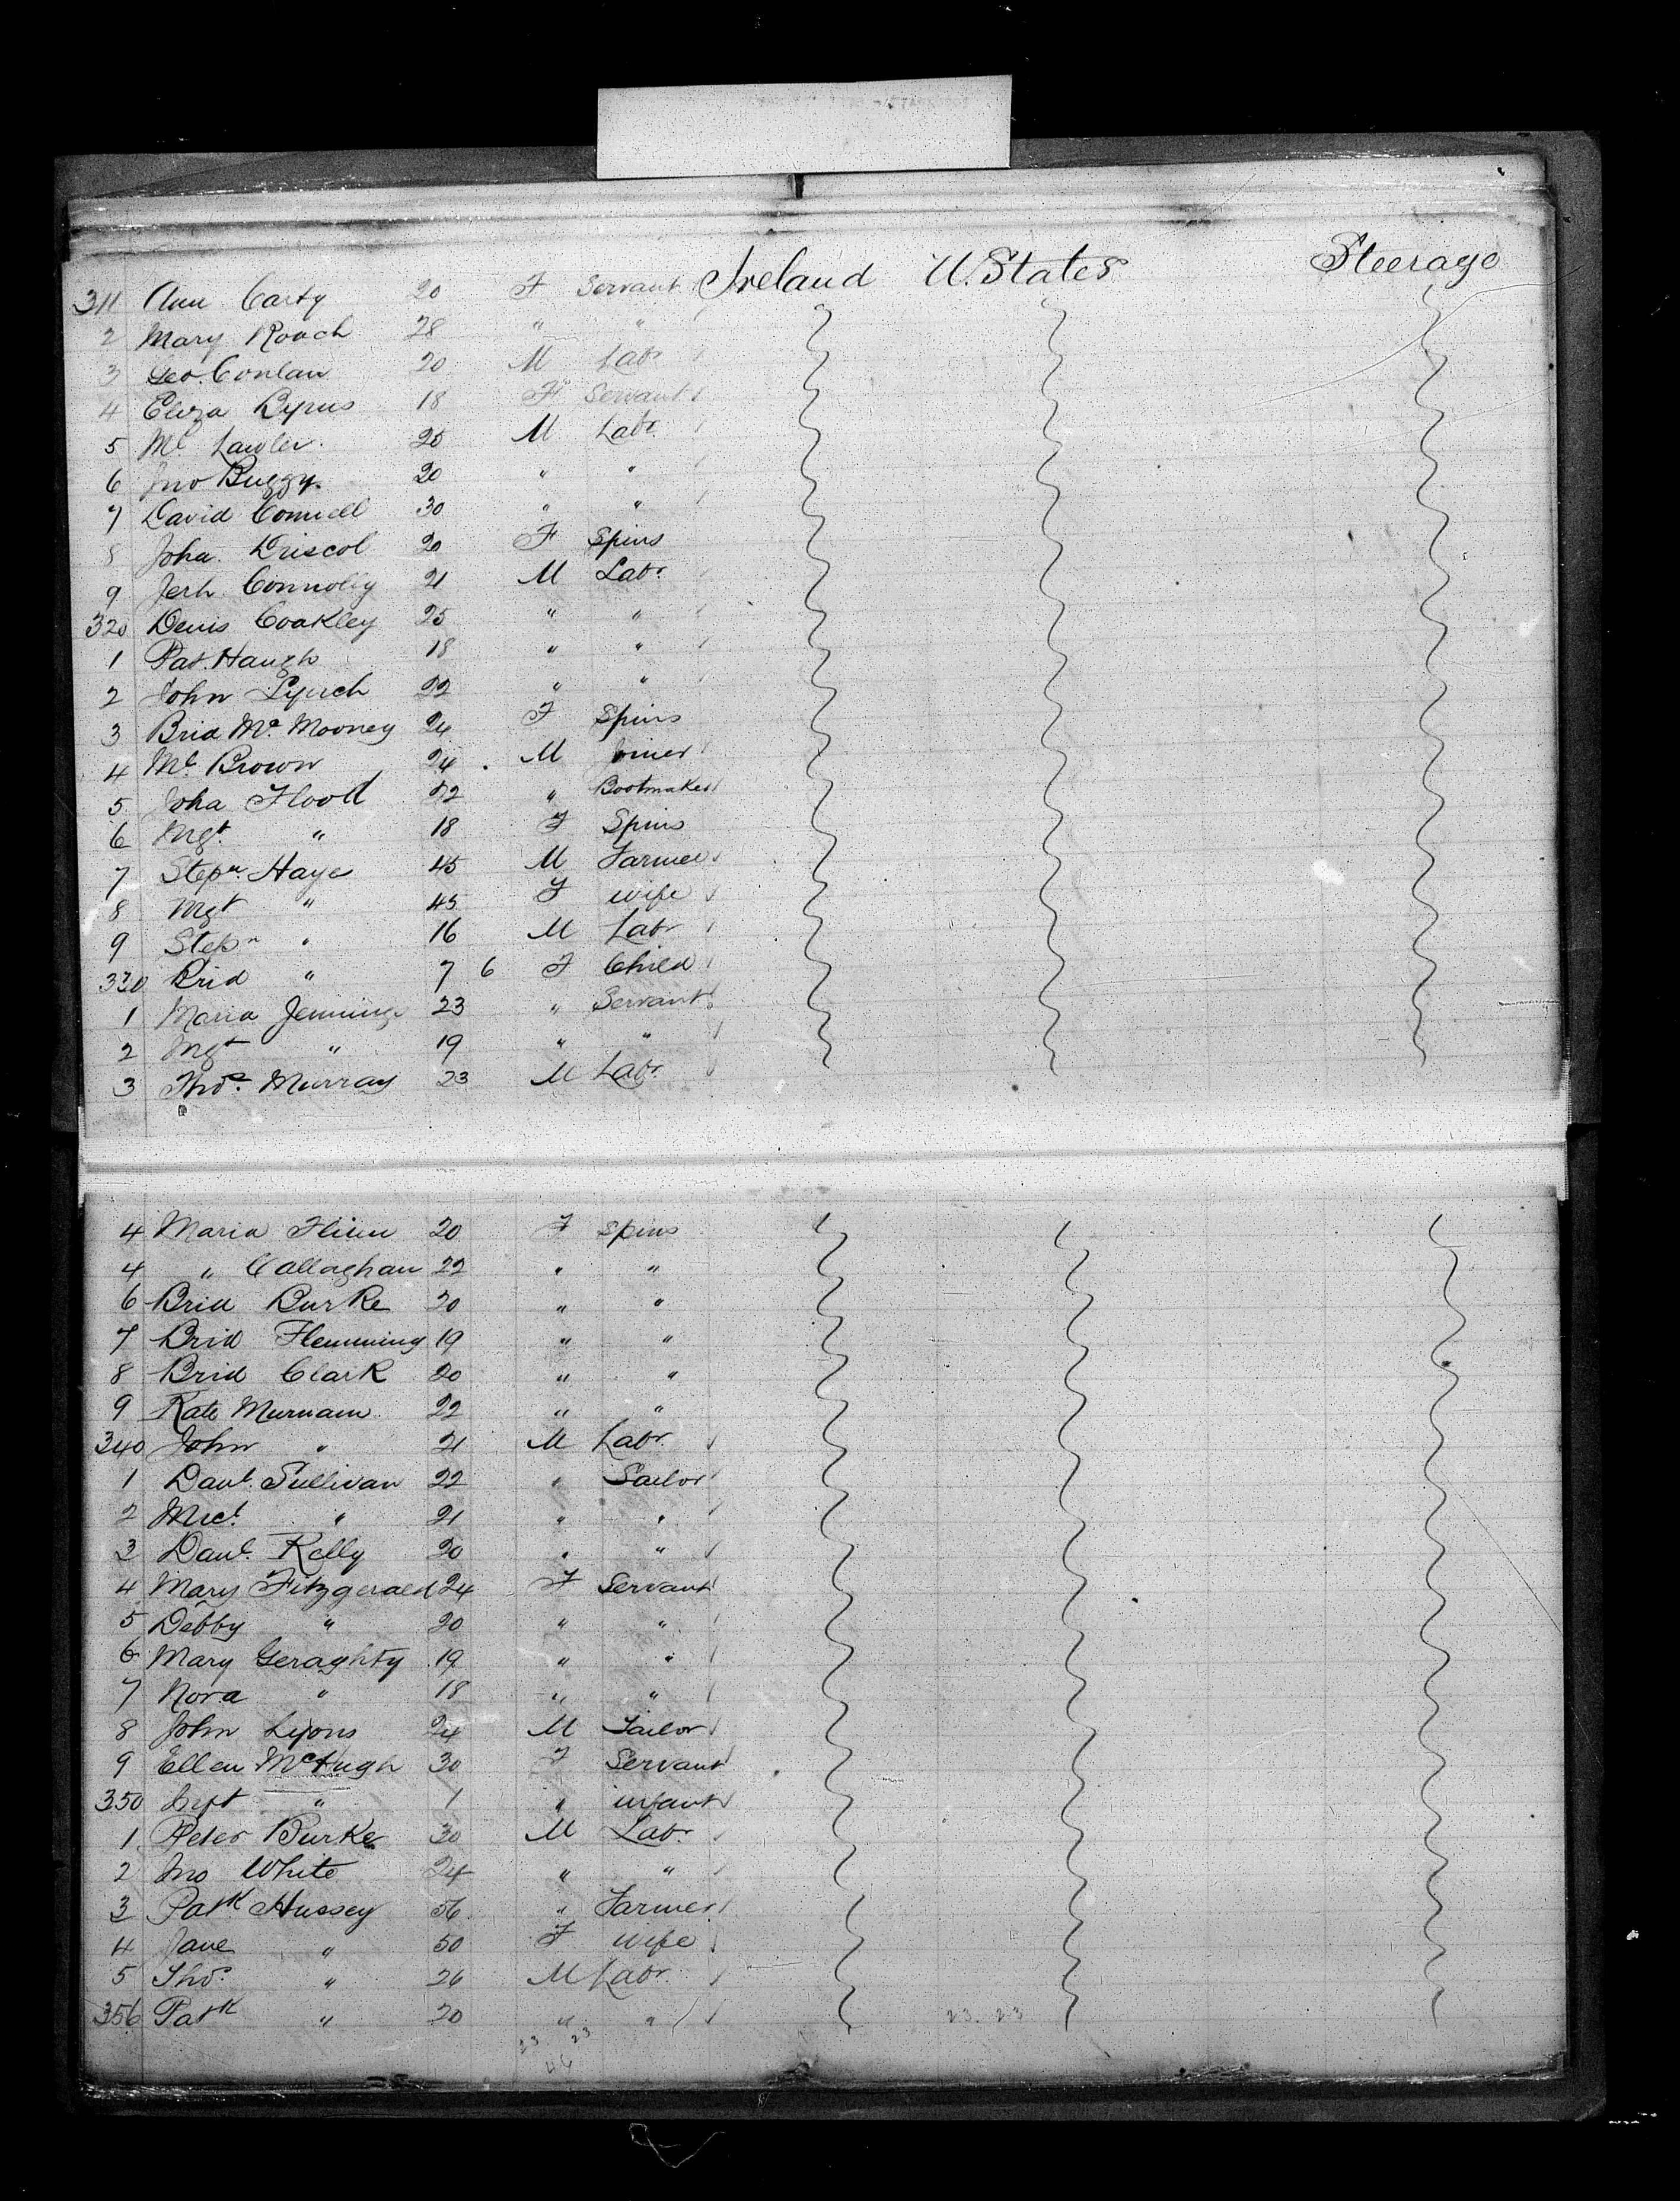 311 Ann Carty 20 F Servant Ireland U. States Steerage
2 Mary Roach 28 " "
3 Geo. Conlan 20 M Labr
4 Eliza Byrns 18 F Servant
5 Ml Lawler 25 M Labr
6 Jno Buggy 20 " "
7 David Connell 30 " "
8 Joha Driscol 20 F Spins
9 Jerh Connolly 21 M Labr
320 Denis Coakley 25 " "
1 Pat. Haugh 18 " "
2 John Lynch 22 " "
3 Brid Mc Mooney 24 F Spins
4 Ml Brown 24 M Joiner
5 Joha Flood 22 " Bootmaker
6 Mgt " 18 F Spins
7 Stepn Hayes 45 M Farmer
8 Mgt " 45 F wife
9 Stepn " 16 M Labr
330 Brid " 7 6 F Child
1 Maria Jennings 23 " Servant
2 Mgt " 19 " "
3 Thos Murray 23 M Labr
4 Maria Flinn 20 F Spins
4 " Callaghan 22 " "
6 Brid Burke 20 " "
7 Brid Flemming 19 " "
8 Brid Clark 20 " "
9 Kate Murnam 22 " "
340 John " 21 M Labr
1 Danl. Sullivan 22 " Sailor
2 Micl " 21 " "
3 Danl. Kelly 20 " "
4 Mary Fitzgerald 24 F Servant
5 Debby " 20 " "
6 Mary Geraghty 19 " "
7 Nora " 18 " "
8 John Lyons 24 M Tailor
9 Ellen McHugh 30 F Servant
350 Inft " 1 " infant
1 Peter Burke 30 M Labr
2 Jno White 24 " "
3 Patk Hussey 56 " Farmer
4 Jane " 50 F wife
5 Thos " 26 M Labr
356 Patk " 20 " "
23 23 23. 23
46